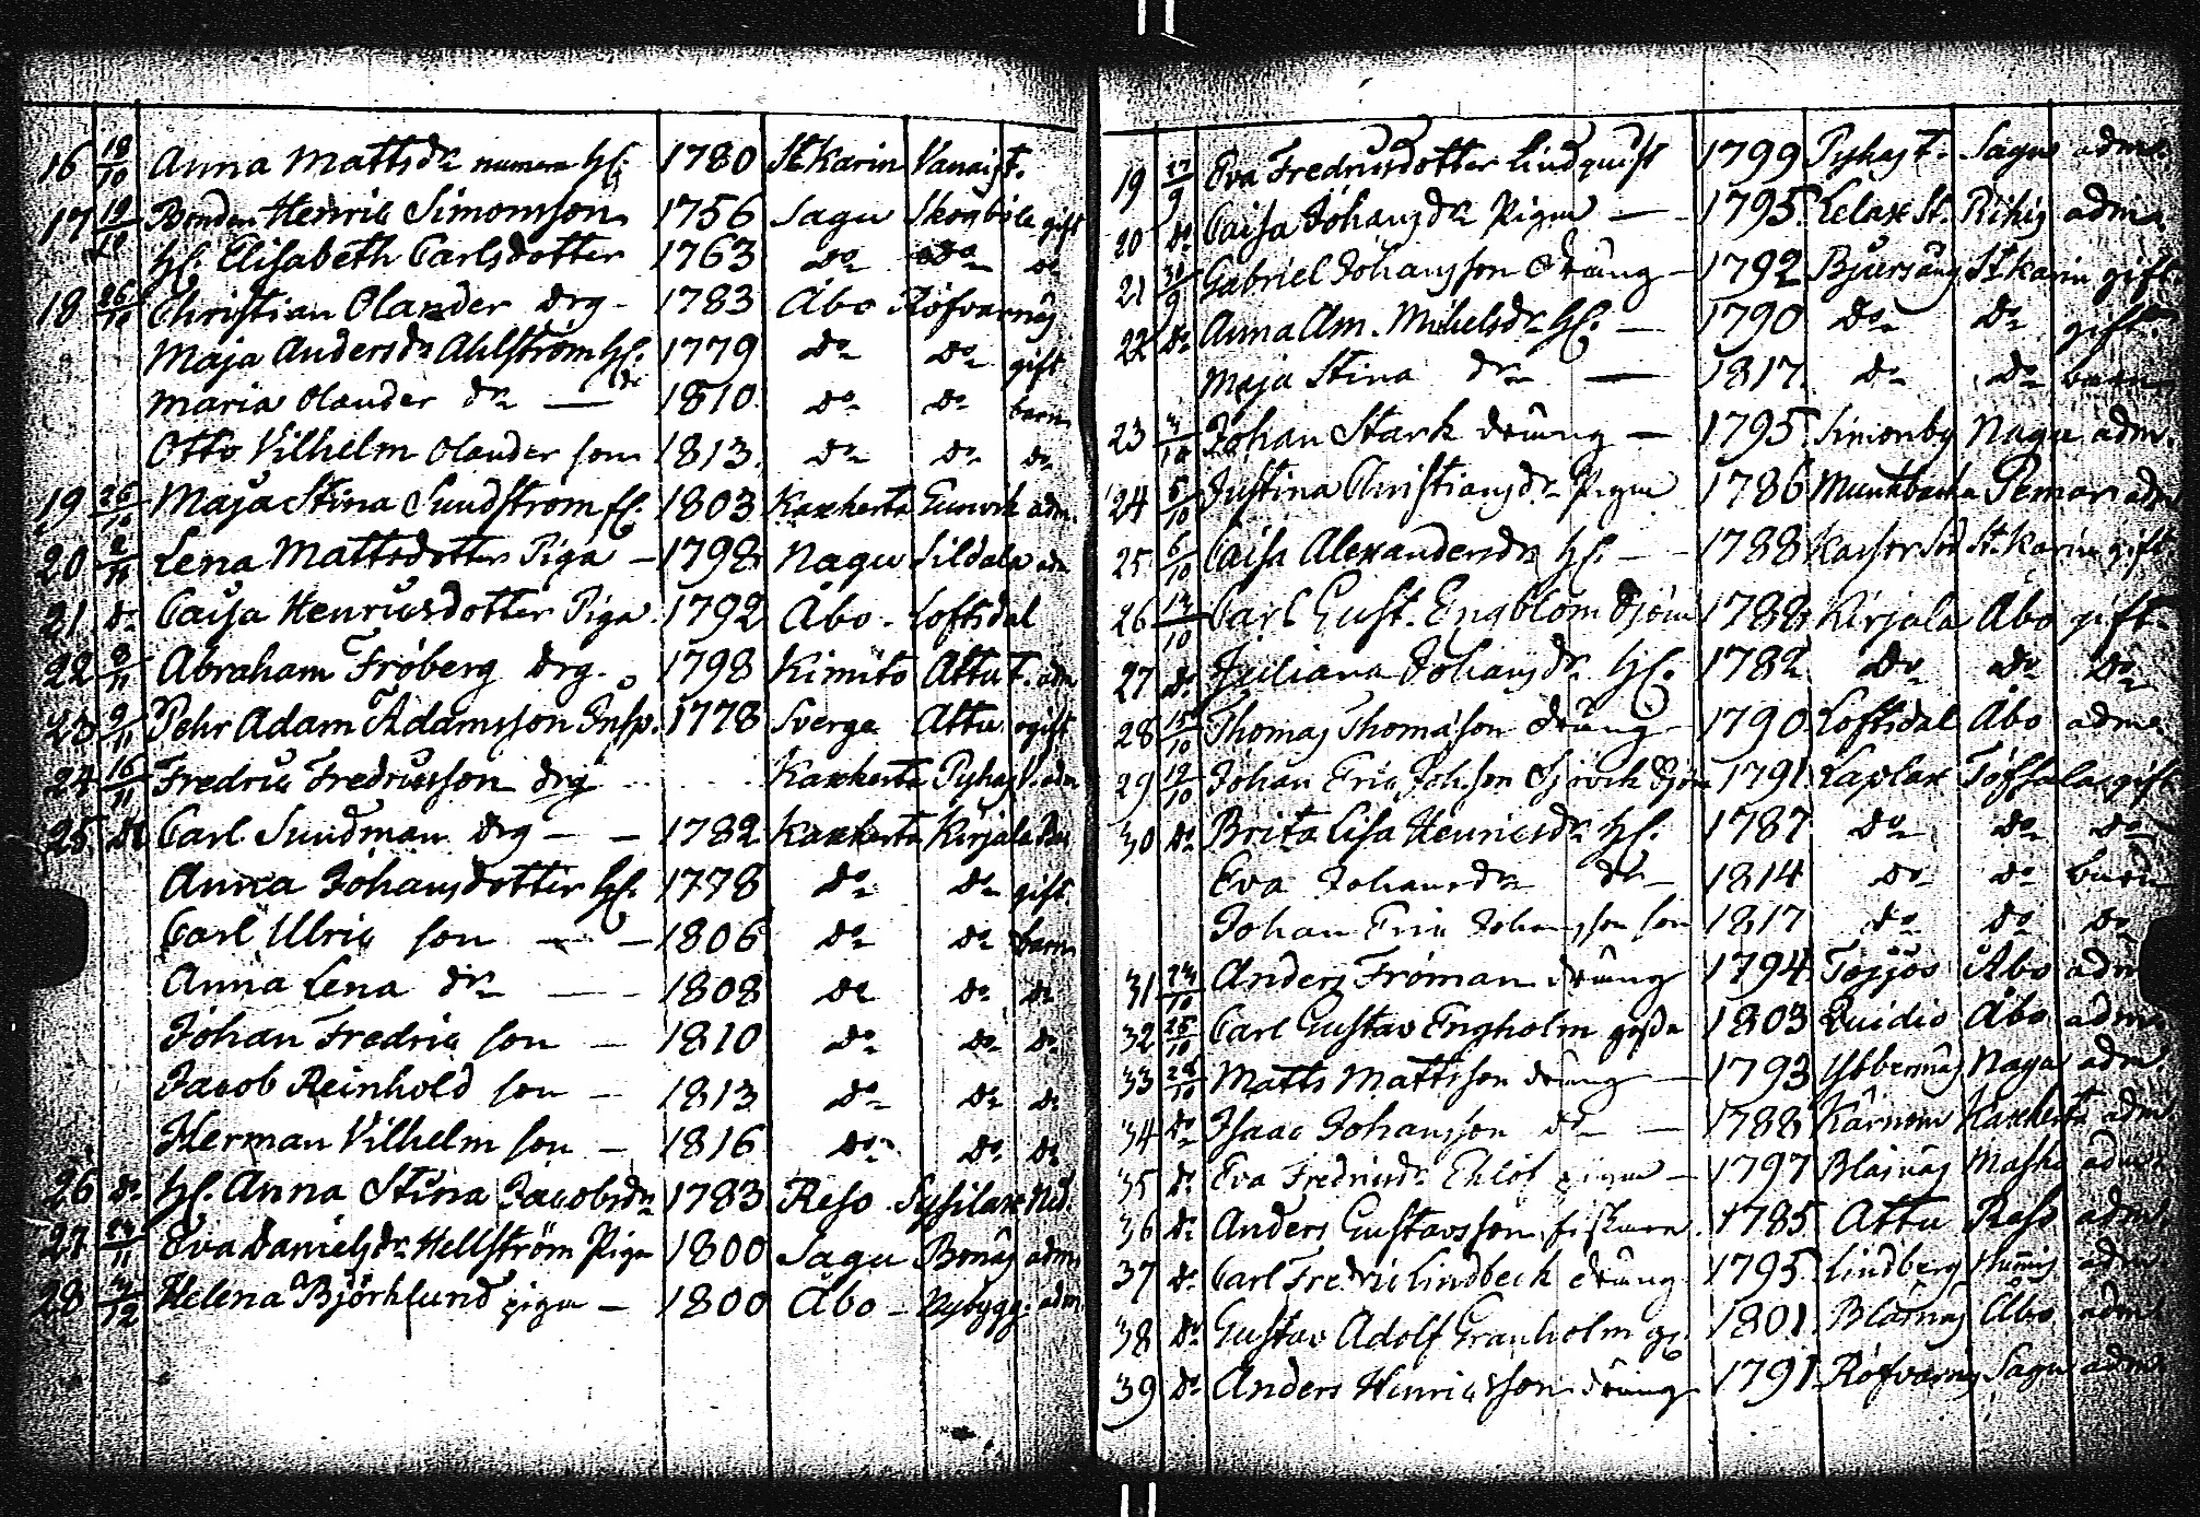 16 18/10 Anna Mattsdr numera hu. 1780 St Karin Vanaist.
17 19/10 Bonden Henric Simonsson 1756 Sagu Skogböle gift
hu. Elisabeth Carlsdotter 1763 do do do
18 26/10 Christian Olander drg 1783 Åbo Röfvarnäs
Maja Andersdr Ahlström hu. 1779 do do gift
Maria Olander dr — 1810 do do barn
Otto Vilhelm Olander son 1813 do do do
19 26/10 Maja Stina Sundström fl. 1803 Kaxkerta Gunvik adm.
20 2/11 Lena Mattsdotter Piga — 1798 Nagu Sildala adm
21 do Caisa Henricsdotter Piga 1792 Åbo - Loftsdal
22 8/11 Abraham Fröberg drg. 1798 Kimito Attu T. adm
23 9/11 Pehr Adam Adamsson Insp. 1778 Sverge Attu ogift
24 16/11 Fredric Fredricsson drg Kaxkerta Pyhäs V. adm
25 do Carl Sundman drg — — 1782 Kaxkerta Kirjala
Anna Johansdotter hu. 1778 do do gift
Carl Ulric son — — 1806 do do barn
Anna Lena dr — — 1808 do do do
Johan Fredric son — 1810 do do do
Jacob Reinhold son — 1813 do do do
Herman Vilhelm son — 1816 do do do
26 do hu. Anna Stina Jacobsdr 1783 Reso Sysilax
27 24/11 Eva Danielsdr Hellström Piga 1800 Sagu Bonäs adm
28 4/12 Helena Björklund piga — 1800 Åbo — Nybygg. adm.
19 27/9 Eva Fredricsdotter Lindquist 1799 Pyhäs t. Sagu adm.
20 do Caisa Johansdr Piga — 1795 Lelax St. Rihis adm.
21 30/9 Gabriel Johansson dräng — 1792 Bjursäng St Karin gift.
22 do Anna Am. Mihelsdr hu. — 1790 do do gift.
Maja Stina dr — 1817 do do barn
23 4/10 Johan Stark dräng — 1795 Simonby Nagu adm.
24 5/10 Justina Christiansdr Piga 1786 Munkbacka Pemar adm
25 6/10 Caisa Alexandersdr hu. — 1788 St. Karin gift.
26 14/10 Carl Gust. Engblom 1788 Kirjala Åbo gift
27 do Juliana Johansdr hu. 1782 do do do
28 15/10 Thomas Thomasson dräng 1790 Loftsdal Åbo adm.
29 19/10 Johan Eric Johsson 1791 Laxlax Töfsala gift
30 do Brita Lisa Henricsdr hu. 1787 do do do
Eva Johansdr dr — 1814 do do barn
Johan Eric Johansson son 1817 do do do
31 24/10 Anders Fröman dräng 1794 Tojjos Åbo adm
32 25/10 Carl Gustav Engholm gosse 1803 Qvidio Åbo adm.
33 28/10 Matts Mattsson dräng — 1793 Ybbernäs Nagu adm.
34 do Isaac Johansson do — 1788 Kärnom Kaxkerta adm.
35 do Eva Fredricsdr Eklöf piga — 1797 Bläsnäs Masku adm.
36 do Anders Gustavsson fiskare 1785 Attu Reso adm.
37 do Carl Fredric Lindbeck dräng 1795 Lindberg adm.
38 do Gustav Adolf Granholm gs. 1801 Bläsnäs Åbo adm.
39 do Anders Henricsson dräng 1791 Röfvarnäs Sagu adm.